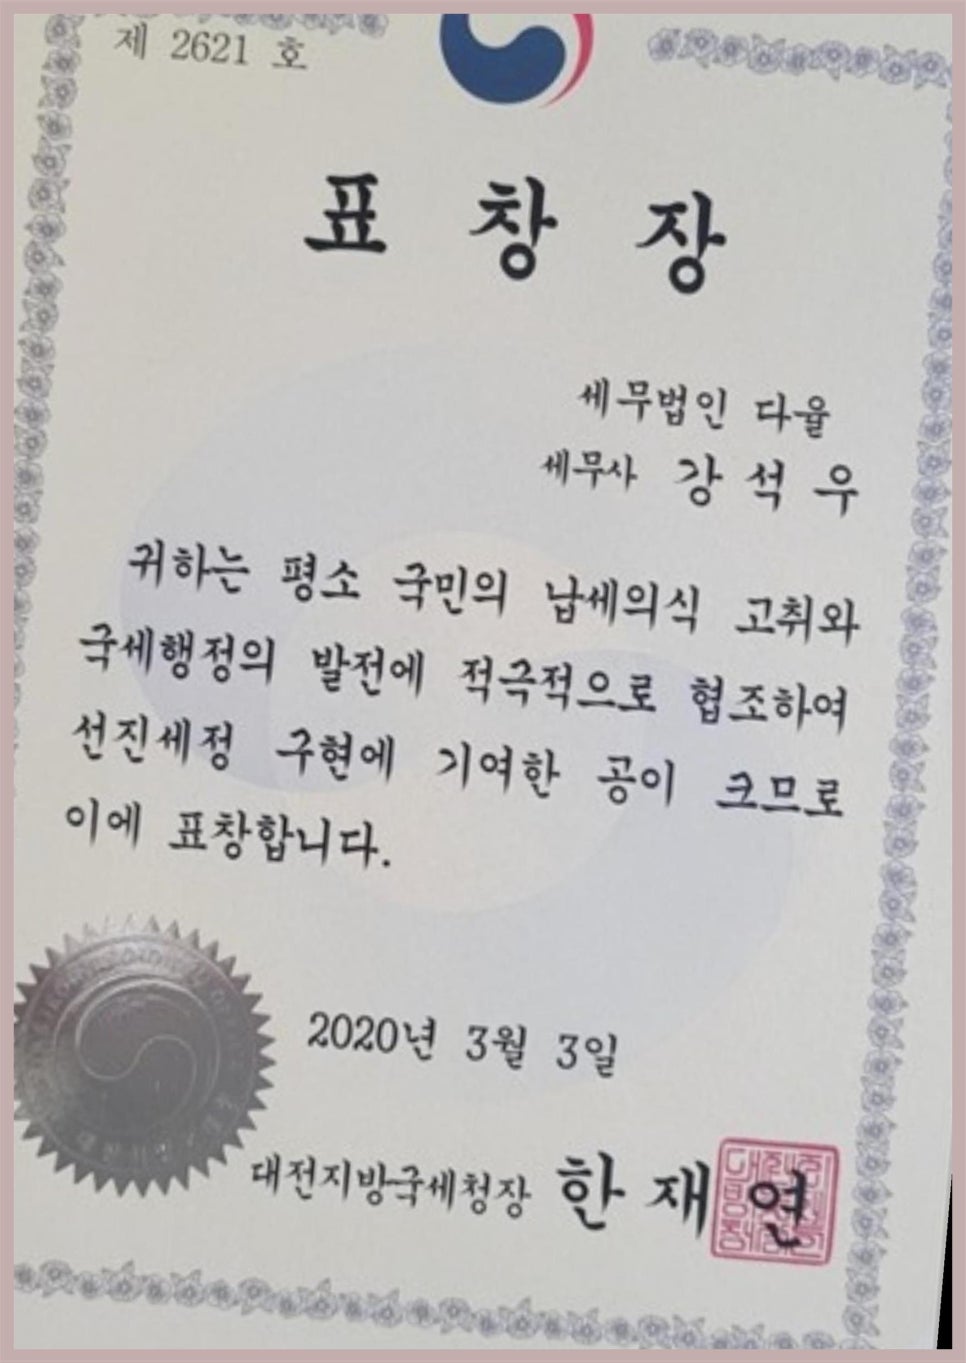 제 2621 호
표 창 장
세무법인 다율
세무사 강 석 우
귀하는 평소 국민의 납세의식 고취와
국세행정의 발전에 적극적으로 협조하여
선진세정 구현에 기여한 공이 크므로
이에 표창합니다.
2020년 3월 3일
대전지방국세청장 한 재 연